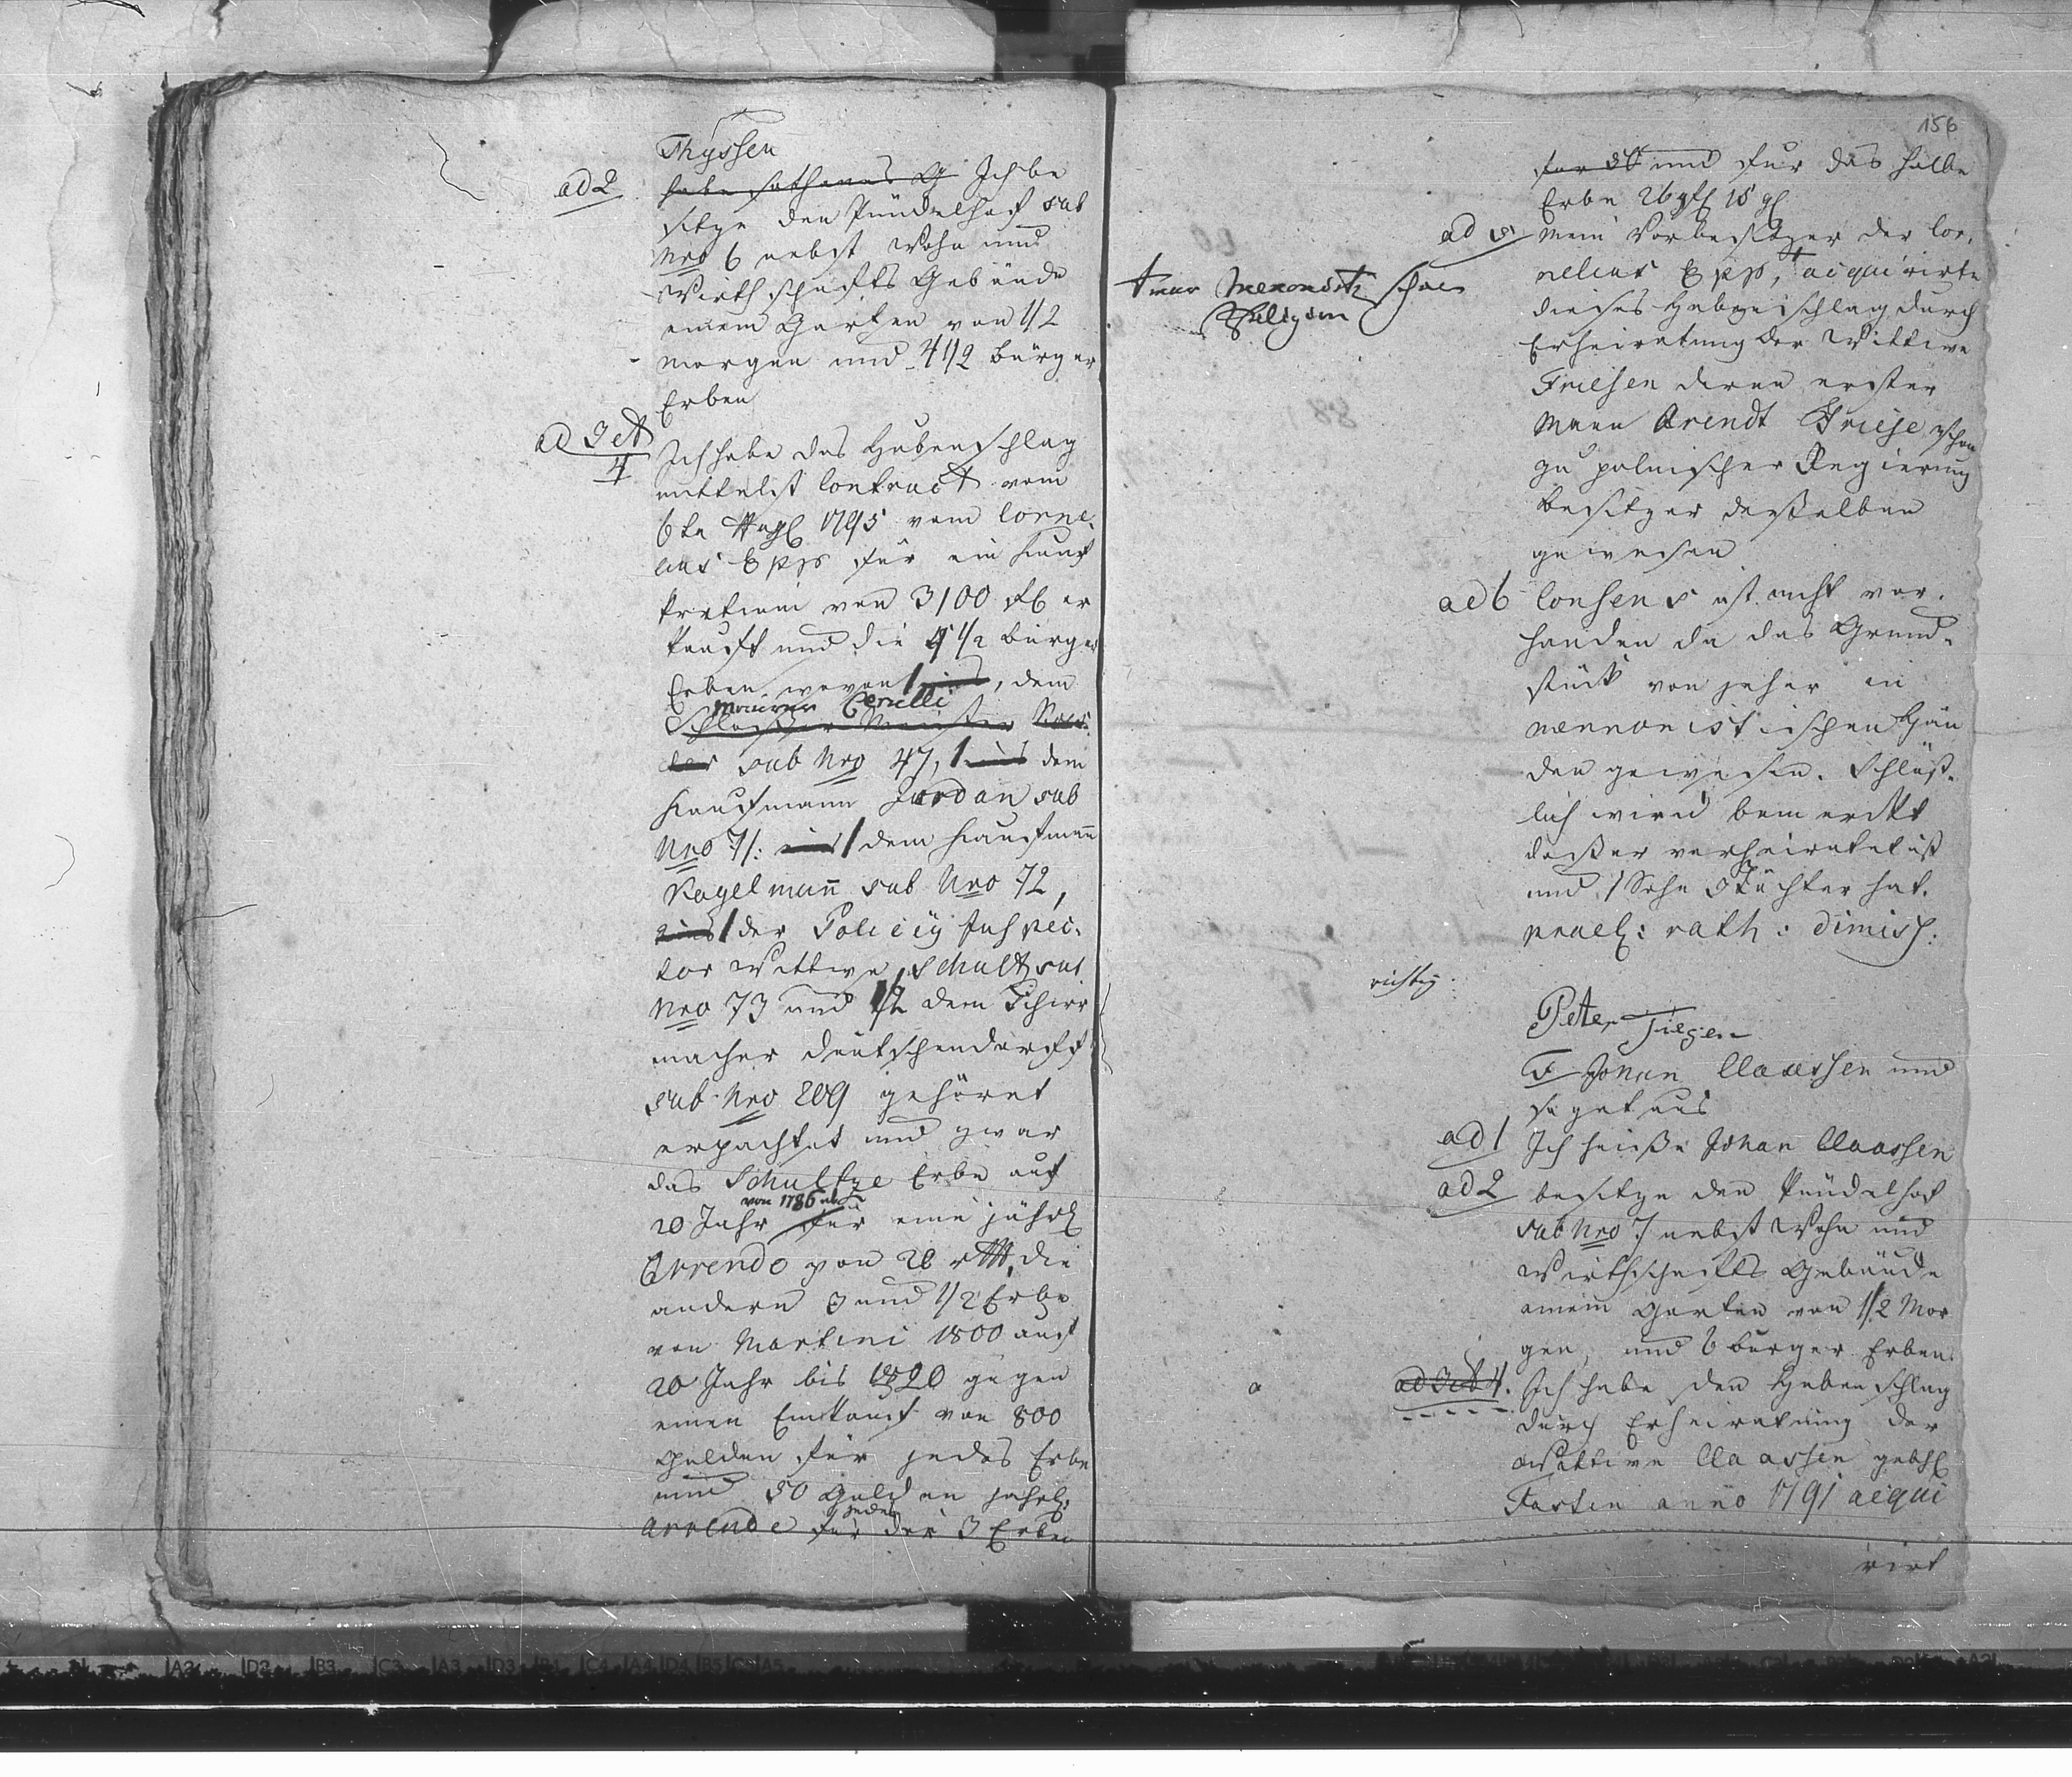 Thyssen
ad 2
habe Ich be
sitze den Kündelhoff sub
Nro 6 nebst Wohn und
Wirthschafts Gebäude
einem Garten von 1/2
morgen und 4 1/2 bürger
Erben
ad 3 et 4
Ich habe das Hubenschlag
mittelst Contract vom
6ten 1795 vom Corne
lius Epp für ein Kauf
Pretium von 3100 fl er
kauft und die 4 1/2 bürger
Erben wovon 1 eins, dem
maurer
Schlosser Meister
sub Nro 47, 1 eins dem
Kaufmann Jordan sub
Nro 71: eins 1 dem Kaufmann
Kagelmann sub Nro 72,
eins 1 der Policey Inspec.
tor Wittwe Schultz sub
Nro 73 und 1/2 dem Schirr
macher Deutschendorff
sub Nro 209 gehöret
erpachtet und zwar
das Schultze Erbe auf
von 1786 ab
20 Jahr für eine jährl
Arrende von 26 rtl, die
andern 3 und 1/2 Erbe
von Martini 1800 auf
20 Jahr bis 1820 gegen
einen Einkauf von 800
Gulden für jedes Erbe
und 50 Gulden jährl:
jedes
Arrende für der 3 Erben
156
für und für das halbe
Erbe 26 rtl 15 gl
ad 5
Mein Vorbesitzer der Cor.
nelius Epp, acquirirte
dieses Hubenschlag durch
Erheiratung der Wittwe
Friesen deren erster
Mann Arendt Friese schon
zu polnischer Regierung
besitzer desselben
gewesen
Religion
ad 6
Consens ist nicht vor.
handen da das Grund=
stück von jeher in
mennonistischen Hän
den gewesen. Schlüß.
lich wird bemerckt
daß er verheiratet ist
und 1 Sohn 3 Töchter hat.
prael: rath: dimiss:
richtig.
Peter
5 Johan Claassen und
saget aus
ad 1
Ich heiße Johan Claassen
ad 2
besitze den Kündelhof
sub Nro 7 nebst Wohn und
Wirthschafts Gebäude
einem Garten von 1/2 Mor
gen, und 6 bürger Erben
ad 3 et 4.
Ich habe den Hubenschlag
durch Erheiratung der
Wittwe Claassen gebh
anno 1791 acqui
rirt